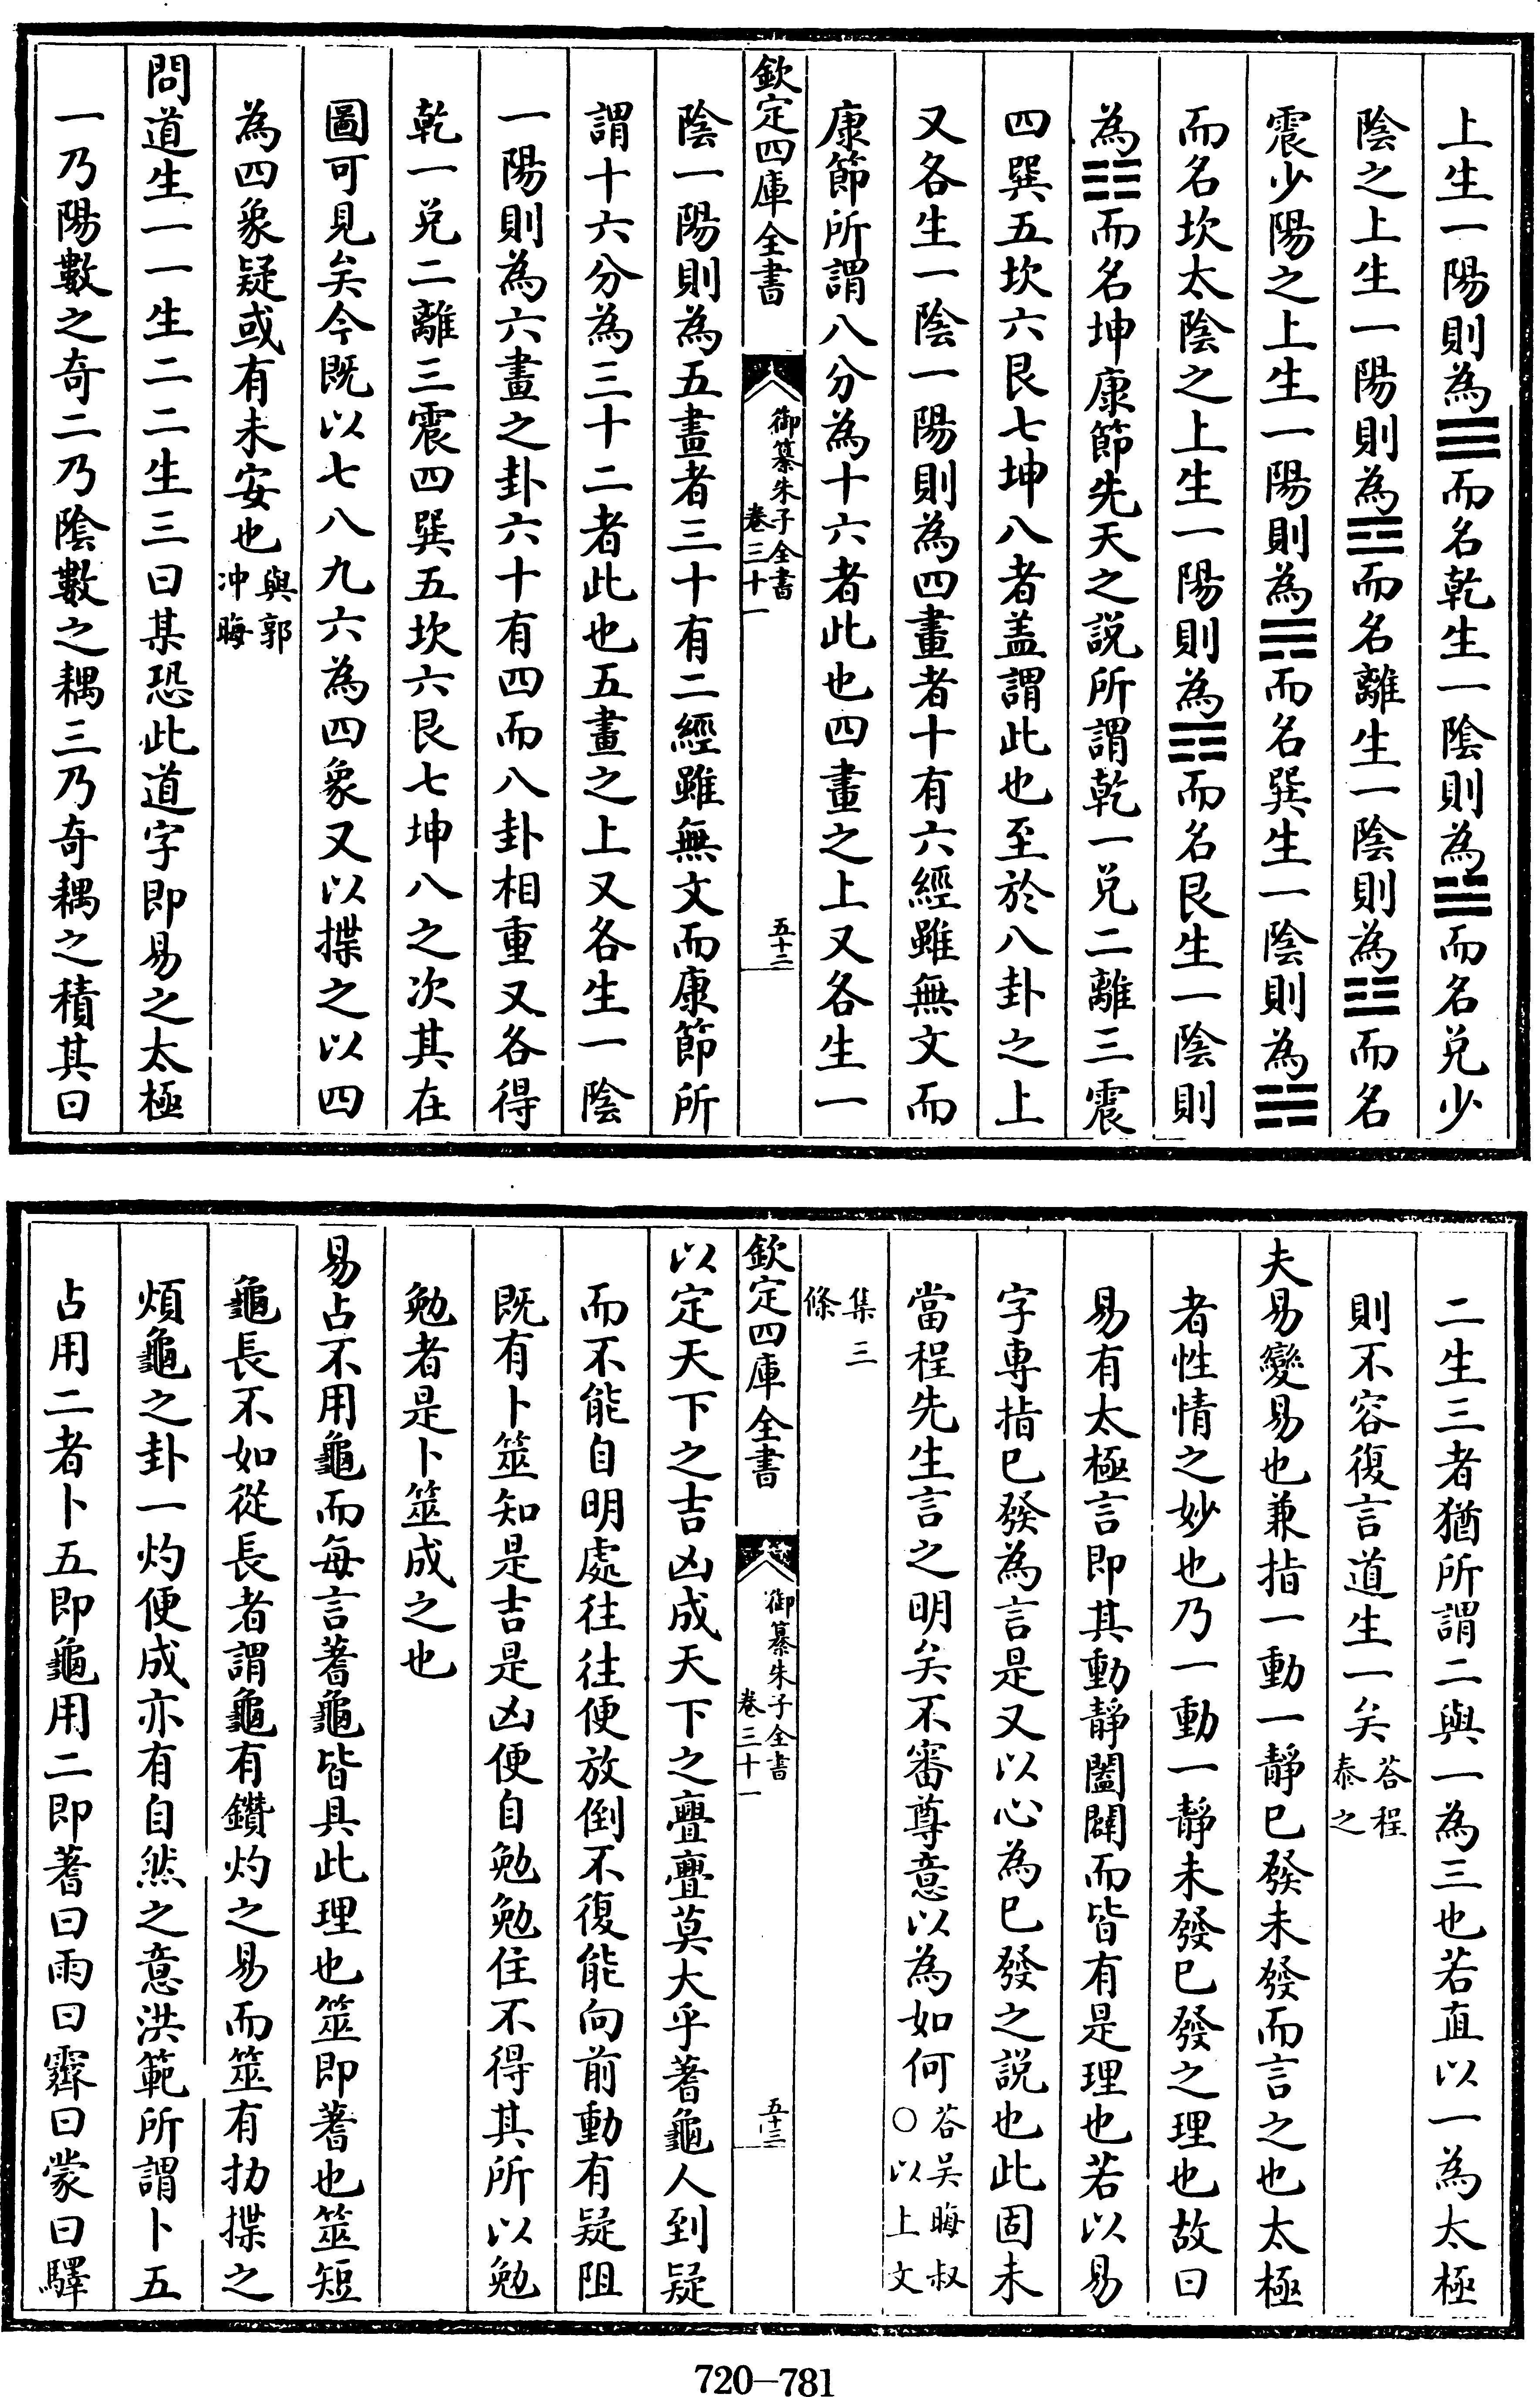 上生一陽則為☰而名乾生一陰則為☱而名兌少
陰之上生一陽則為☲而名離生一陰則為☳而名
震少陽之上生一陽則為☴而名巽生一陰則為☵
而名坎太陰之上生一陽則為☶而名艮生一陰則
為☷而名坤康節先天之説所謂乾一兌二離三震
四巽五坎六艮七坤八者盖謂此也至於八卦之上
又各生一陰一陽則為四畫者十有六經雖無文而
康節所謂八分為十六者此也四畫之上又各生一
欽定四庫全書
御纂朱子全書
卷三十一
五十二
陰一陽則為五畫者三十有二經雖無文而康節所
謂十六分為三十二者此也五畫之上又各生一陰
一陽則為六畫之卦六十有四而八卦相重又各得
乾一兌二離三震四巽五坎六艮七坤八之次其在
圖可見矣今既以七八九六為四象又以揲之以四
為四象疑或有未安也與郭
冲晦
問道生一一生二二生三曰某恐此道字即易之太極
一乃陽數之奇二乃陰數之耦三乃奇耦之積其曰
二生三者猶所謂二與一為三也若直以一為太極
則不容復言道生一矣荅程
泰之
夫易變易也兼指一動一靜已發未發而言之也太極
者性情之妙也乃一動一靜未發已發之理也故曰
易有太極言即其動靜闔闢而皆有是理也若以易
字專指已發為言是又以心為已發之説也此固未
當程先生言之明矣不審尊意以為如何荅吴晦叔
○以上文
集三
條
欽定四庫全書
御纂朱子全書
卷三十一
五十三
以定天下之吉凶成天下之亹亹莫大乎蓍龜人到疑
而不能自明處往往便放倒不復能向前動有疑阻
既有卜筮知是吉是凶便自勉勉住不得其所以勉
勉者是卜筮成之也
易占不用龜而每言蓍龜皆具此理也筮即蓍也筮短
龜長不如從長者謂龜有鑽灼之易而筮有扐揲之
煩龜之卦一灼便成亦有自然之意洪範所謂卜五
占用二者卜五即龜用二即蓍曰雨曰霽曰蒙曰驛
720—781